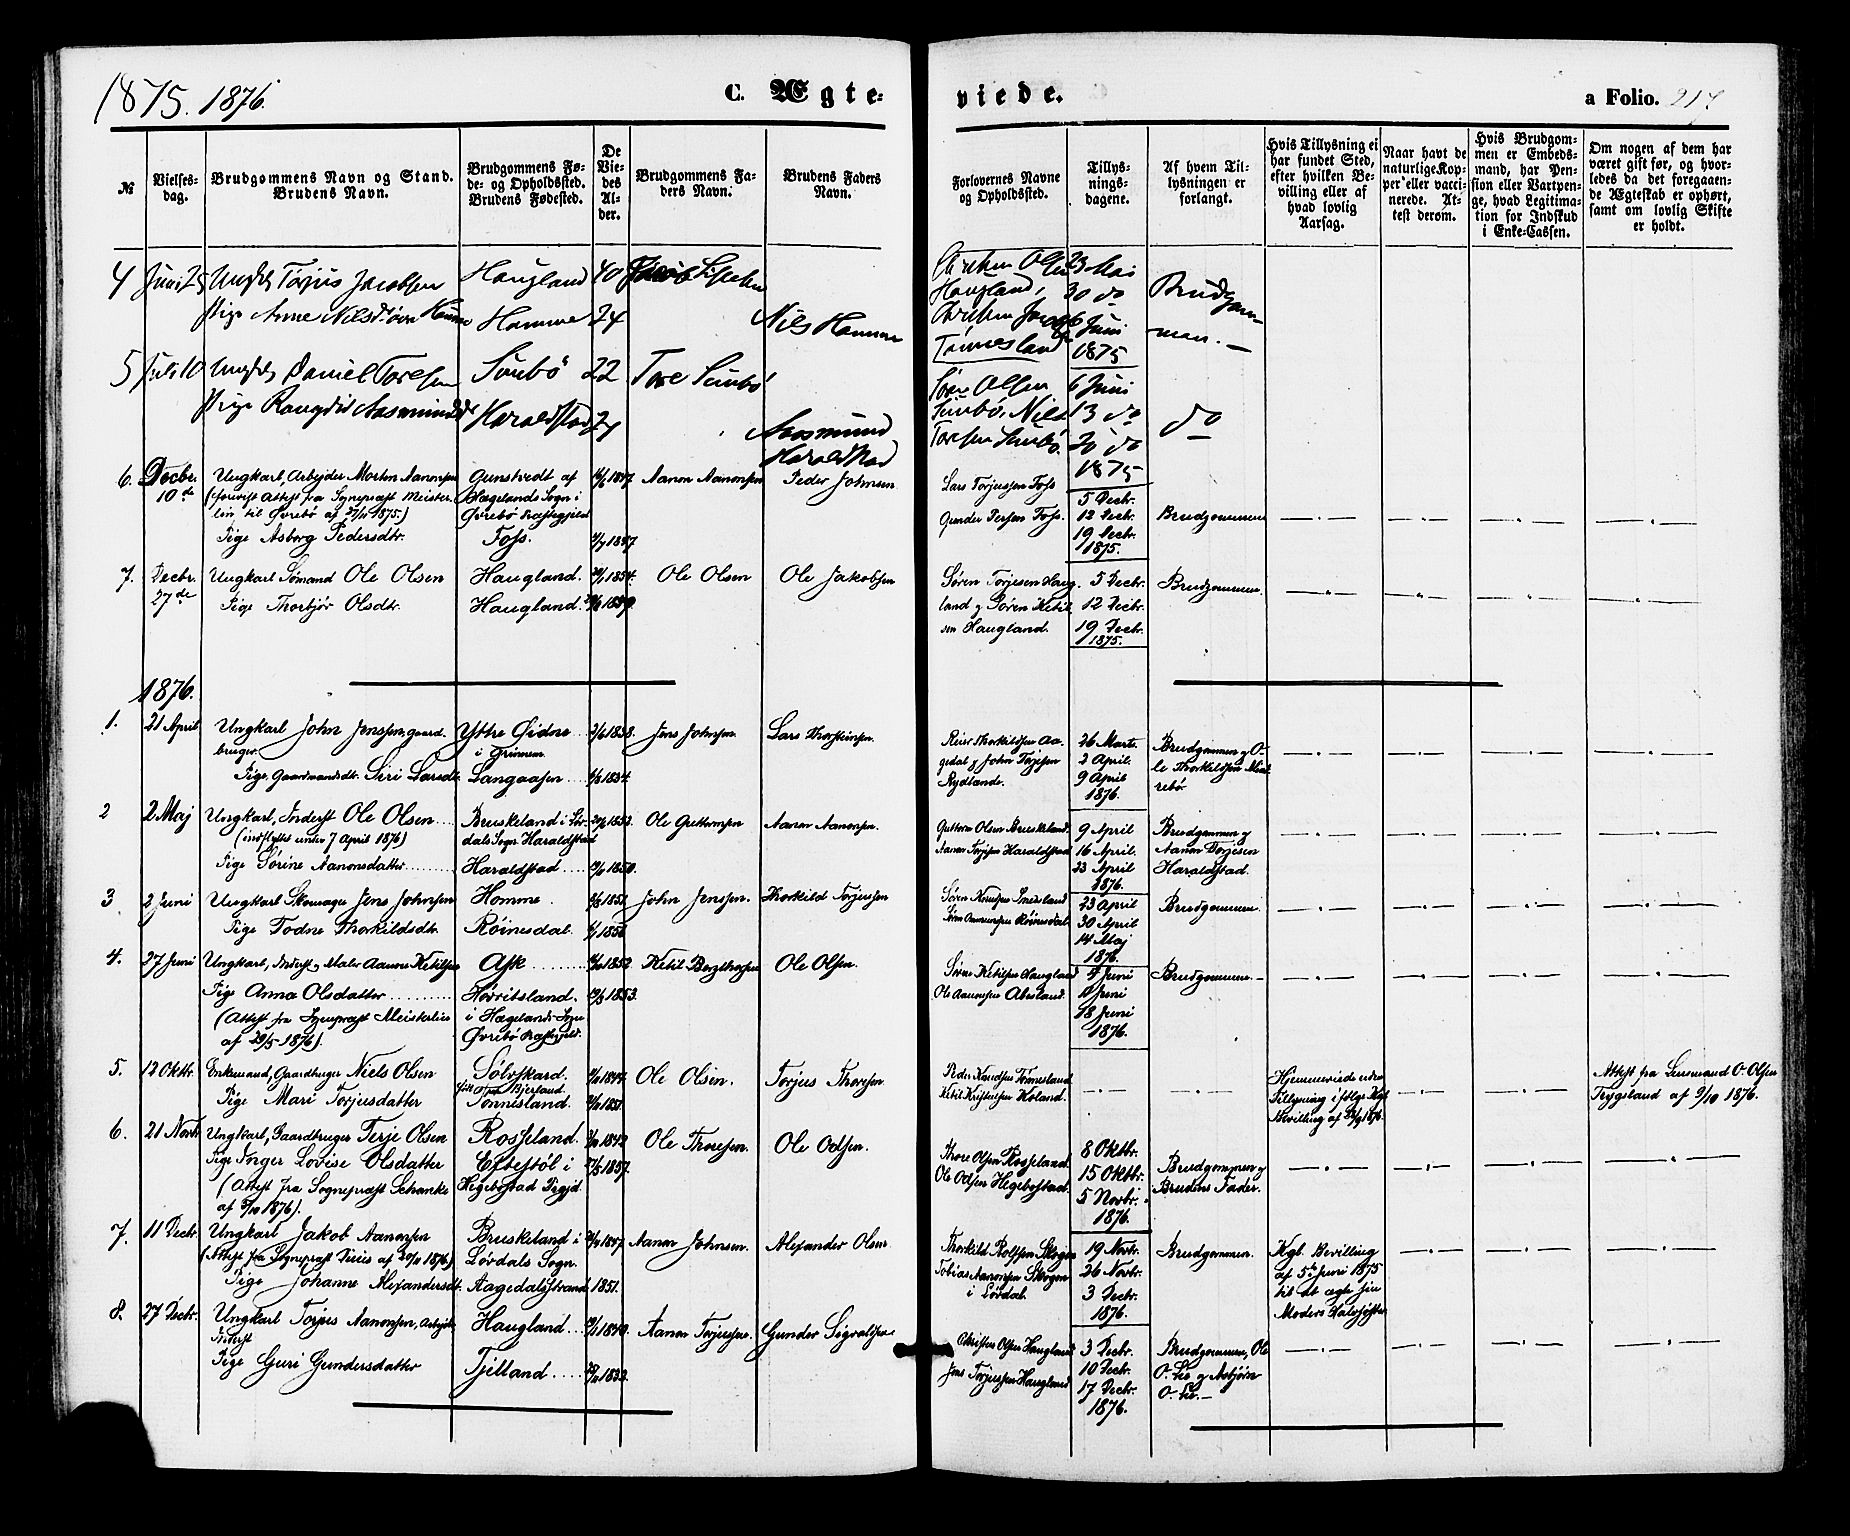 1875. 1876.
C. Ægte-
viede.
a Folio. 217
№
Vielses-
dag.
Brudgommens Navn og Stand.
Brudens Navn.
Brudgommens Fø-
de- og Opholdssted.
Brudens Fødested.
De
Vie-
des
Al-
der.
Brudgommens Fa-
ders Navn.
Brudens Faders
Navn.
Forlovernes Navne
og Opholdssted.
Tillys-
nings-
dagene.
Af hvem Til-
lysningen er
forlangt.
Hvis Tillysning ei
har fundet Sted,
efter hvilken Be-
villing eller af
hvad lovlig
Aarsag.
Naar havt de
naturlige Kop-
per eller vacci-
nerede. At-
test derom.
Hvis Brudgom-
men er Embeds-
mand, har Pen-
sion eller Vartpen-
ge, hvad Legitima-
tion for Indskud
i Enke-Cassen.
Om nogen af dem har
været gift før, og hvor-
ledes da det foregaaen-
de Ægteskab er ophørt,
samt om lovlig Skifte
er holdt.
4 Juni 25 Ungk. Torjus Jacobsen Haugland 40 Jacob
Pige Anne Nilsd. Homme 24 Nils Homme
Olsen 23 Mai
Haugland, 30 do Brudgom-
6 Juni men.
Tønnesland 1875
5 Juli 10 Ungk. Daniel Toresen Sunbø 22 Tore Sunbø
Pige Rangdid Aasmundsd. Haraldstad 24 Aasmund
Haraldstad
Tore Olsen 6 Juni
Sunbø, Nils 13 do do
Toresen Sunbø. 20 do
1875
6. Decbr. 10de Ungkarl, Arbeider Morten Aanonsen Gunstvedt af 1847 Aanon Aanonsen Peder Johnsen
(forevist Attest fra Sognepræst Meister- Hægelands Sogn i
lin til Øvrebø af 27/11 1875.) Øvrebø Præstegjeld
Pige Asborg Pedersdtr. Foss. 1847
Lars Torjussen Foss
Gunder Persen Foss.
5 Decbr.
12 Decbr.
19 Decbr.
1875.
Brudgommen
7. Decbr. 27de Ungkarl Sømand Ole Olsen Haugland. 1854. Ole Olsen Ole Jakobsen
Pige Thorbjør Olsdtr. Haugland.
Søren Torjesen Haug- 5 Decbr. Brudgommen.
land og Søren Ketil- 12 Decbr.
sen Haugland. 19 Decbr.
1875.
1876.
1. 21 April Ungkarl John Jenssen, gaard- Yttre Øidne 1838. Jens Johnsen. Lars Thorsteinsen.
bruger. i Grinnem
Pige, Gaardmandsdtr. Siri Larsdt. Langaasen 1834.
Reier Thorkildsen Aa- 26 Marts. Brudgommen og O-
gedal og John Torjesen 2 April. le Thorkildsen
Rydlande. 9 April
1876.
2 2 Maj Ungkarl, Inderst Ole Olsen Bruskeland i 1853. Ole Guttormsen Aanon Aanonsen.
(indflyttet under 7 April 1876) dals Sogn Haraldstad
Pige Sørine Aanonsdatter Haraldstad 1850.
Guttorm Olsen Bruskeland. 9 April Brudgommen og
Aanon Torjesen Haraldstad 16 April. Aanon Torjesen
23 April Haraldstad.
1876.
3 2 Juni Ungkarl Skomager Jens Johnsen Homme. 1851. John Jenssen. Thorkild Torjussen
Pige Todne Thorkildsdtr. Røinesdal. 1856
Søren Knudsen 23 April Brudgommen.
Røinesdal. 30 April
14 Maj
1876.
4. 27 Juni Ungkarl, Inderst, Maler Aanon Ketilsen Ask 1852. Ketil Bergthorsen Ole Olsen.
Pige Anna Olsdatter Høvritsland. 1853.
(Attest fra Sognepræst Meisterlin i Hægelands Sogn
af 29/5 1876). Øvrebø Præstegjeld.
Søren Ketilsen Haugland 4 Juni Brudgommen.
Ole Aanonsen Abesland. 11 Juni
18 Juni
1876.
5. 12 Oktbr. Enkemand, Gaardbruger Niels Olsen Sølvskard. 1844. Ole Olsen. Torjus Thoresen.
Pige Mari Torjusdatter Tønnisland. 1851.
Peder Knudsen Tønnesland
Ketil Kristensen Koland.
Hjemmeviede uden
Tillysning i følge Kgl.
Bevilling af
Attest fra Lensmand O. Olsen
Trygsland af 9/10 1876.
6. 21 Novbr. Ungkarl, Gaardbruger Terje Olsen Rosseland. 1842 Ole Thoresen. Ole Odsen.
Pige Inger Lovise Olsdatter Eftestøl i 1857.
(Attest fra Sognepræst Schanke Hegebostad Prgjd.
af 1876).
Thore Olsen Rosseland. 8 Oktbr.
Ole Odsen Hegebostad. 15 Oktbr. Brudgommen og
5 Novbr. Brudens Fader.
1876.
7. 11 Decbr. Ungkarl Jakob Aanonsen Bruskeland i 1857. Aanon Johnsen. Alexander Olsen
(Attest fra Sognepræst af 29/11 1876) Løvdals Sogn.
Pige Johanne Alexandersdt. Aagedalsstrand 1851.
Thorkild Rolfsen Skogen 19 Novbr. Brudgommen. Kgl. Bevilling
Tobias Aanonsen Skogen 26 Novbr. af 5te Juni 1875
i Løvdal. 3 Decbr. til at ægte sin
1876. Moders Halvsøster
8. 27 Decbr. Ungkarl Torjus Aanonsen, Haugland 1840. Aanon Torjussen. Gunder Sigvaldsen
Inderst
Pige Guri Gundersdatter Tjelland 1833.
Christen Olsen Haugland 3 Decbr. Brudgommen, Ole
Jens Torjussen Haugland 10 Decbr. O. Lie og Asbjørn
17 Decbr. O. Lie.
1876.